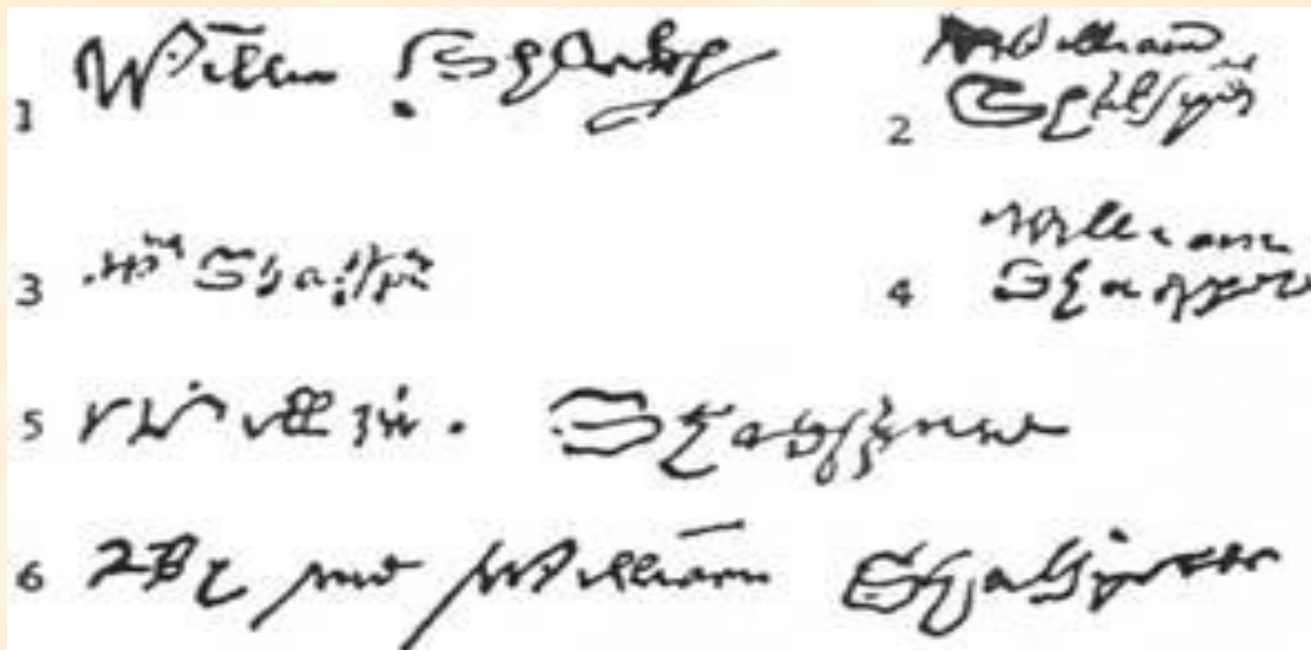 1 Willm Shakp
2 William
Shakspēr
3 Wm Shakspē
4 William
Shakspere
5 Willm Shakspere
6 By me William Shakspeare